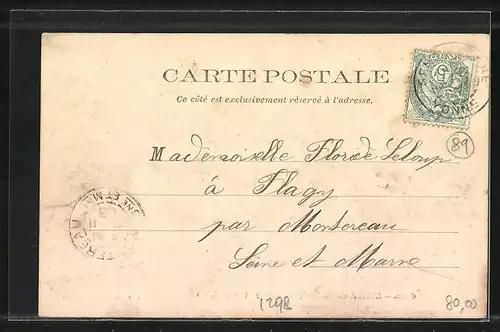 CARTE POSTALE
Ce côté est exclusivement réservé à l'adresse.
YONNE
89
Mademoiselle Leloup
à Flagy
par Montereau
Seine et Marne
1298
80,00